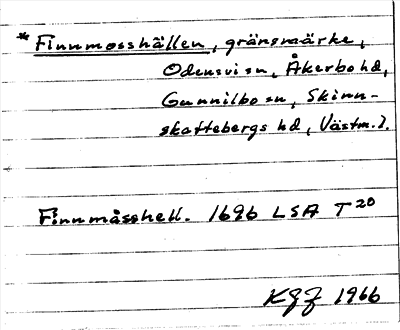 * Finnmosshällen, gränsmärke,
Odensvi sn, Åkerbo hd,
Gunnilbo sn, Skinn-
skattebergs hd, Västm.l.
Finnmåsshell. 1696 LSA T 20
KGJ 1966